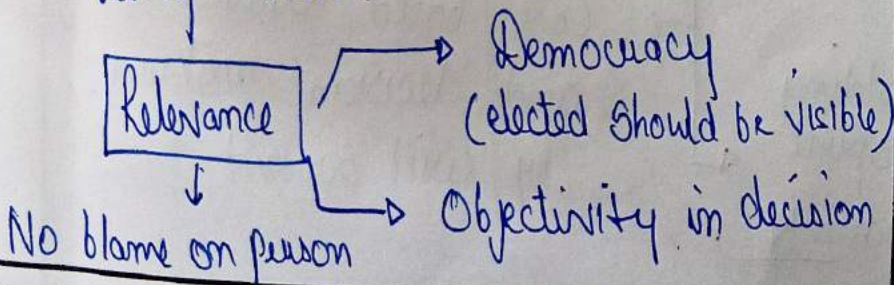 Democracy
Relevance
(elected should be visible)
Objectivity in decision
No blame on person